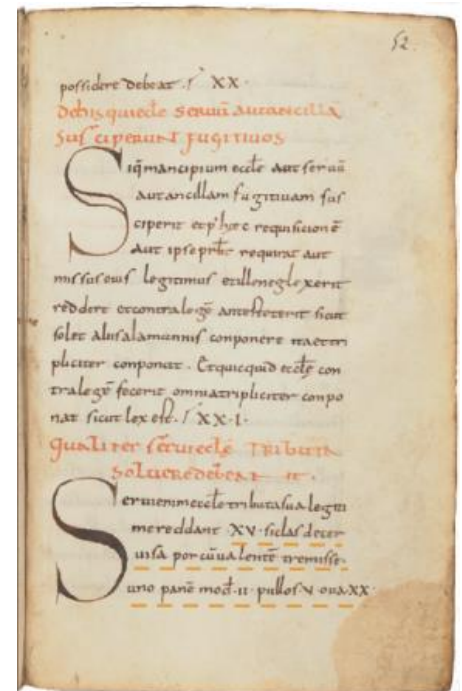 52.
possidere debeat . XX .
De his qui eccle servū aut ancillā
susceperunt fugitivos
Siq̄ mancipium eccle aut servū
aut ancillam fugitivam sus
ciperit et p' hęc requisicionē
aut ipse prbr requirat aut
missus eius legitimus et ille neglexerit
reddere et contra legē ante steterit sicut
solet aliis alamannis conponere ita et tri
pliciter conponat . Et quicquid eccle con
tra legē fecerit omnia tripliciter conpo
nat sicut lex est . XX . I .
Qualiter servi eccle tributa
solvere debeant . II .
Servi enim eccle tributa sua legiti
me reddant . XV . siclas de cer
uisa porcū valentē tremisse
uno panē mod . II . pullos V . ova XX .